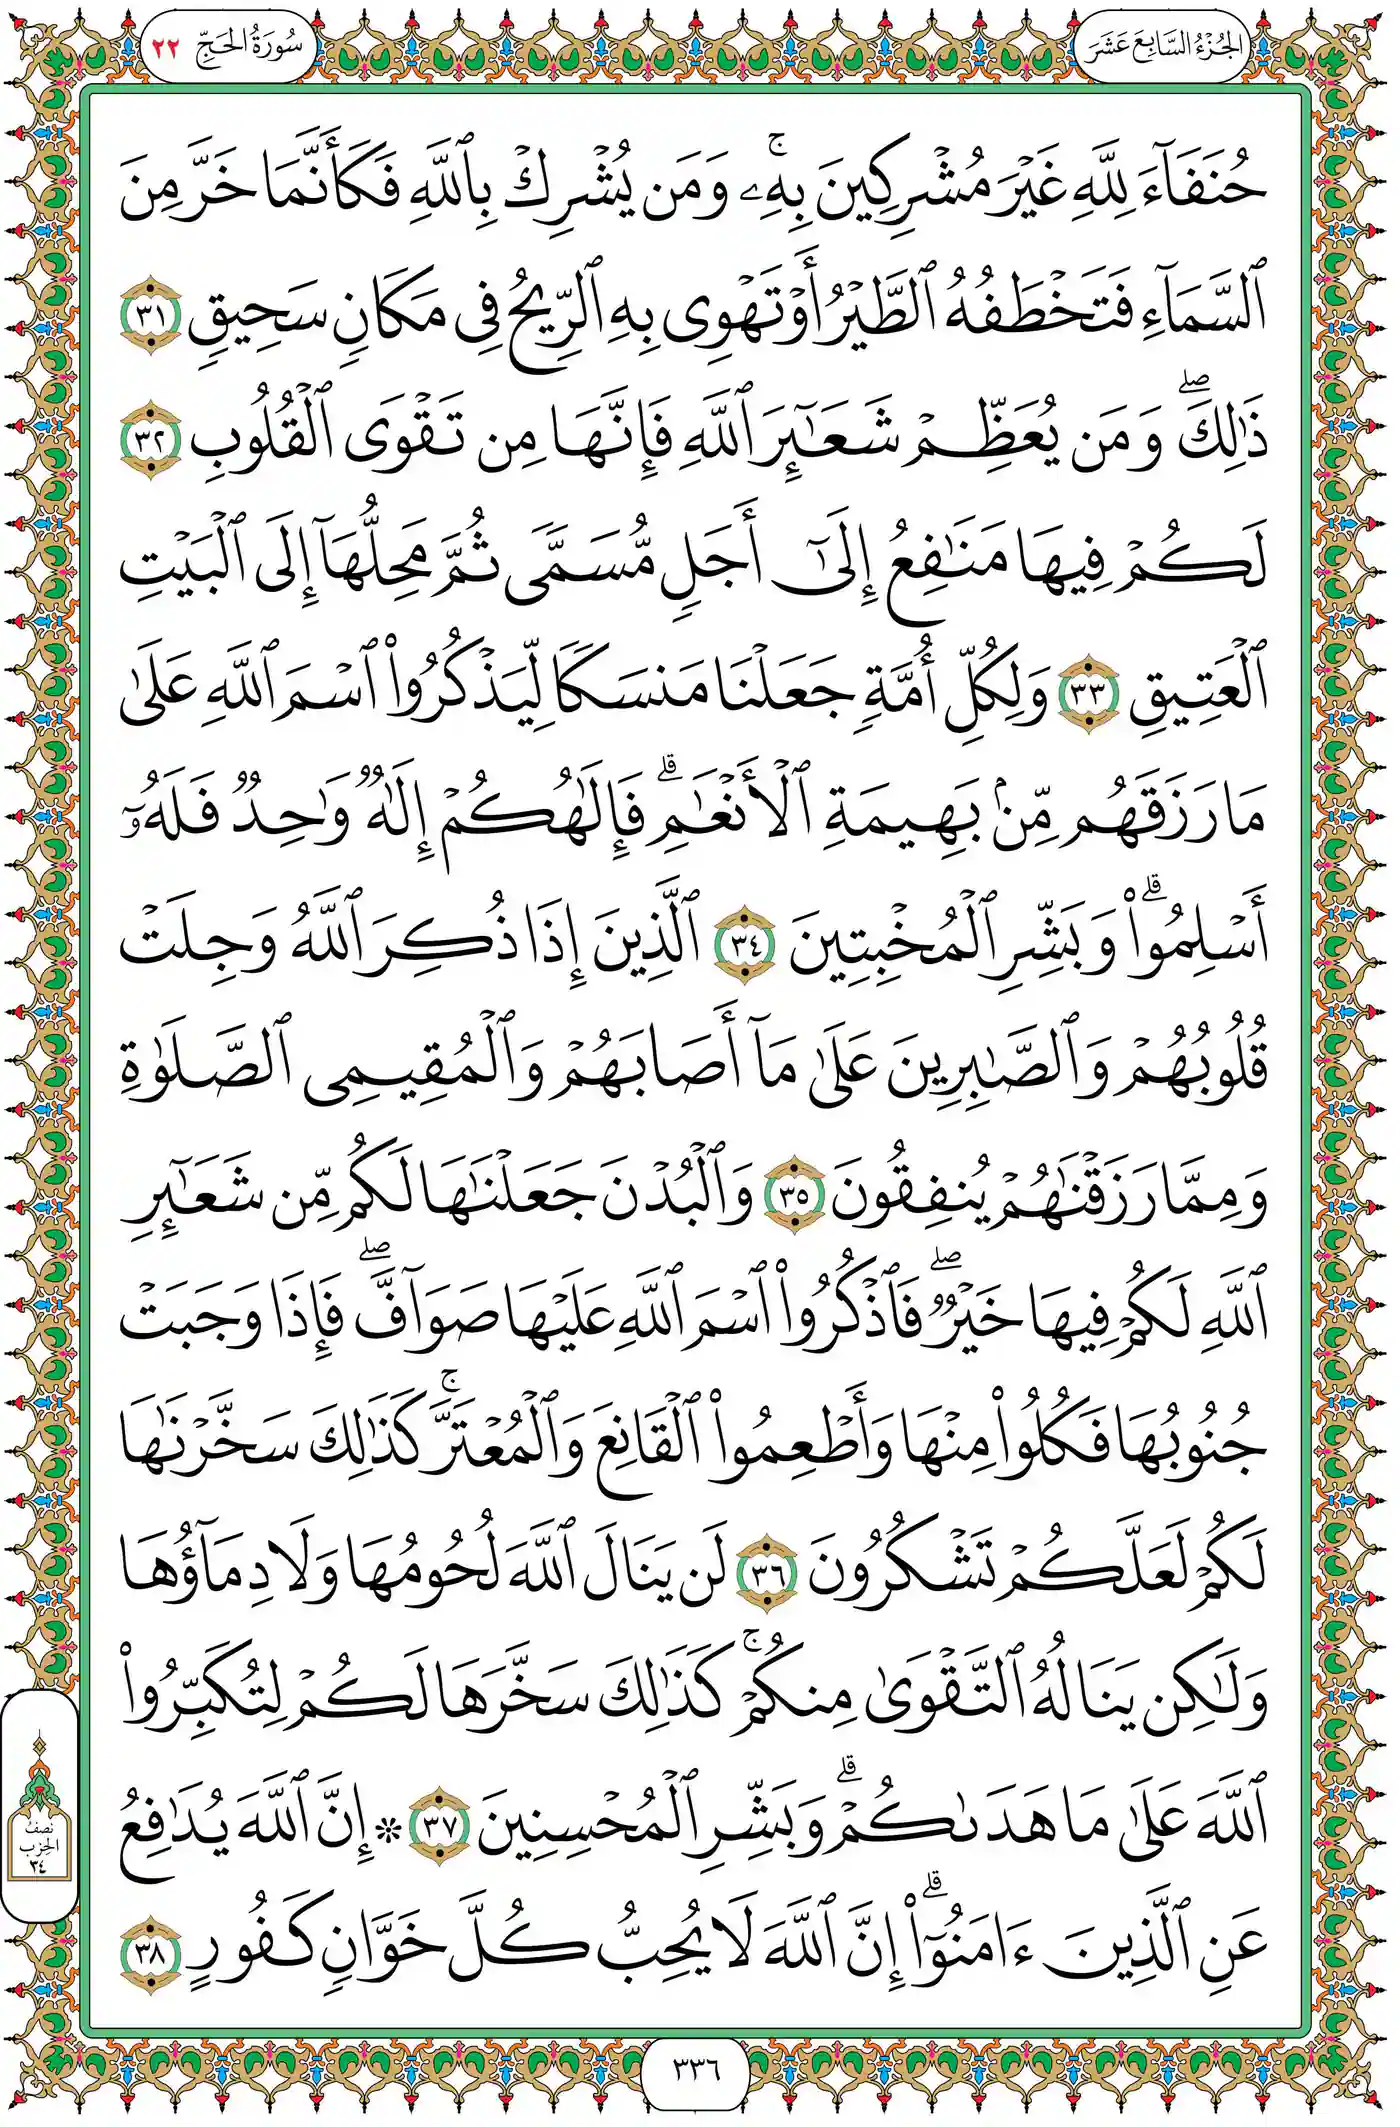 الجُزْءُ السَّابِعَ عَشَرَ
سُورَةُ الحَجِّ ٢٢
حُنَفَآءَ لِلَّهِ غَيْرَ مُشْرِكِينَ بِهِۦۚ وَمَن يُشْرِكْ بِٱللَّهِ فَكَأَنَّمَا خَرَّ مِنَ
ٱلسَّمَآءِ فَتَخْطَفُهُ ٱلطَّيْرُ أَوْ تَهْوِى بِهِ ٱلرِّيحُ فِى مَكَانٍ سَحِيقٍ ٣١
ذَٰلِكَۖ وَمَن يُعَظِّمْ شَعَـٰٓئِرَ ٱللَّهِ فَإِنَّهَا مِن تَقْوَى ٱلْقُلُوبِ ٣٢
لَكُمْ فِيهَا مَنَـٰفِعُ إِلَىٰٓ أَجَلٍ مُّسَمًّى ثُمَّ مَحِلُّهَآ إِلَى ٱلْبَيْتِ
ٱلْعَتِيقِ ٣٣ وَلِكُلِّ أُمَّةٍ جَعَلْنَا مَنسَكًا لِّيَذْكُرُوا۟ ٱسْمَ ٱللَّهِ عَلَىٰ
مَا رَزَقَهُم مِّنۢ بَهِيمَةِ ٱلْأَنْعَـٰمِۗ فَإِلَـٰهُكُمْ إِلَـٰهٌ وَٰحِدٌ فَلَهُۥٓ
أَسْلِمُوا۟ۗ وَبَشِّرِ ٱلْمُخْبِتِينَ ٣٤ ٱلَّذِينَ إِذَا ذُكِرَ ٱللَّهُ وَجِلَتْ
قُلُوبُهُمْ وَٱلصَّـٰبِرِينَ عَلَىٰ مَآ أَصَابَهُمْ وَٱلْمُقِيمِى ٱلصَّلَوٰةِ
وَمِمَّا رَزَقْنَـٰهُمْ يُنفِقُونَ ٣٥ وَٱلْبُدْنَ جَعَلْنَـٰهَا لَكُم مِّن شَعَـٰٓئِرِ
ٱللَّهِ لَكُمْ فِيهَا خَيْرٌۖ فَٱذْكُرُوا۟ ٱسْمَ ٱللَّهِ عَلَيْهَا صَوَآفَّۖ فَإِذَا وَجَبَتْ
جُنُوبُهَا فَكُلُوا۟ مِنْهَا وَأَطْعِمُوا۟ ٱلْقَانِعَ وَٱلْمُعْتَرَّۚ كَذَٰلِكَ سَخَّرْنَـٰهَا
لَكُمْ لَعَلَّكُمْ تَشْكُرُونَ ٣٦ لَن يَنَالَ ٱللَّهَ لُحُومُهَا وَلَا دِمَآؤُهَا
وَلَـٰكِن يَنَالُهُ ٱلتَّقْوَىٰ مِنكُمْۚ كَذَٰلِكَ سَخَّرَهَا لَكُمْ لِتُكَبِّرُوا۟
ٱللَّهَ عَلَىٰ مَا هَدَىٰكُمْۗ وَبَشِّرِ ٱلْمُحْسِنِينَ ٣٧ ۞ إِنَّ ٱللَّهَ يُدَٰفِعُ
عَنِ ٱلَّذِينَ ءَامَنُوٓا۟ۗ إِنَّ ٱللَّهَ لَا يُحِبُّ كُلَّ خَوَّانٍ كَفُورٍ ٣٨
نصف
الحزب
٣٤
٣٣٦